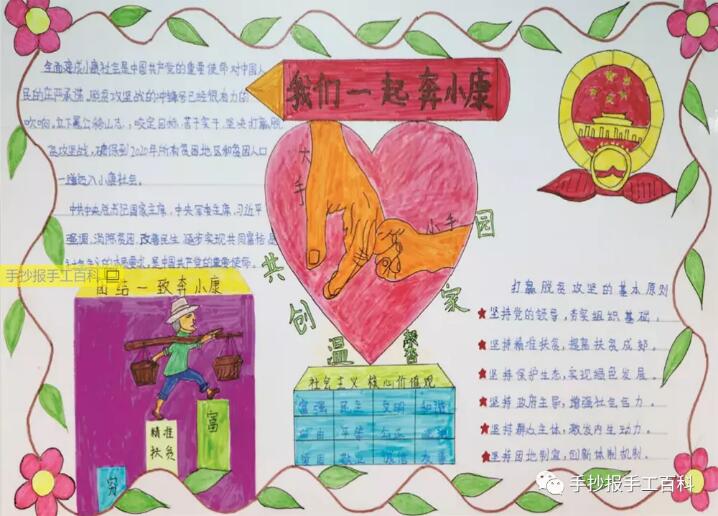 我们一起奔小康
全面建成小康社会是中国共产党的重要使命对中国人
民的庄严承诺。脱贫攻坚战的冲锋号已经
吹响。立下愚公移山志，咬定目标、苦干实干，坚决打赢脱
贫攻坚战，确保到2020年所有贫困地区和贫困人口
一道迈入小康社会。
中共中央总书记国家主席，中央军委主席，习近平
强调，消除贫困、改善民生、逐步实现共同富裕是
社会主义的本质要求，是中国共产党的重要使命。
手抄报手工百科
团结一致奔小康
富
精准
扶贫
穷
大手
小手
共创温馨家园
社会主义核心价值观
富强 民主 文明 和谐
自由 平等 公正 法治
爱国 敬业 诚信 友善
打赢脱贫攻坚的基本原则
坚持党的领导，夯实组织基础。
坚持精准扶贫，提高扶贫成效。
坚持保护生态，实现绿色发展。
坚持政府主导，增强社会合力。
坚持群众主体，激发内生动力。
坚持因地制宜，创新体制机制。
手抄报手工百科